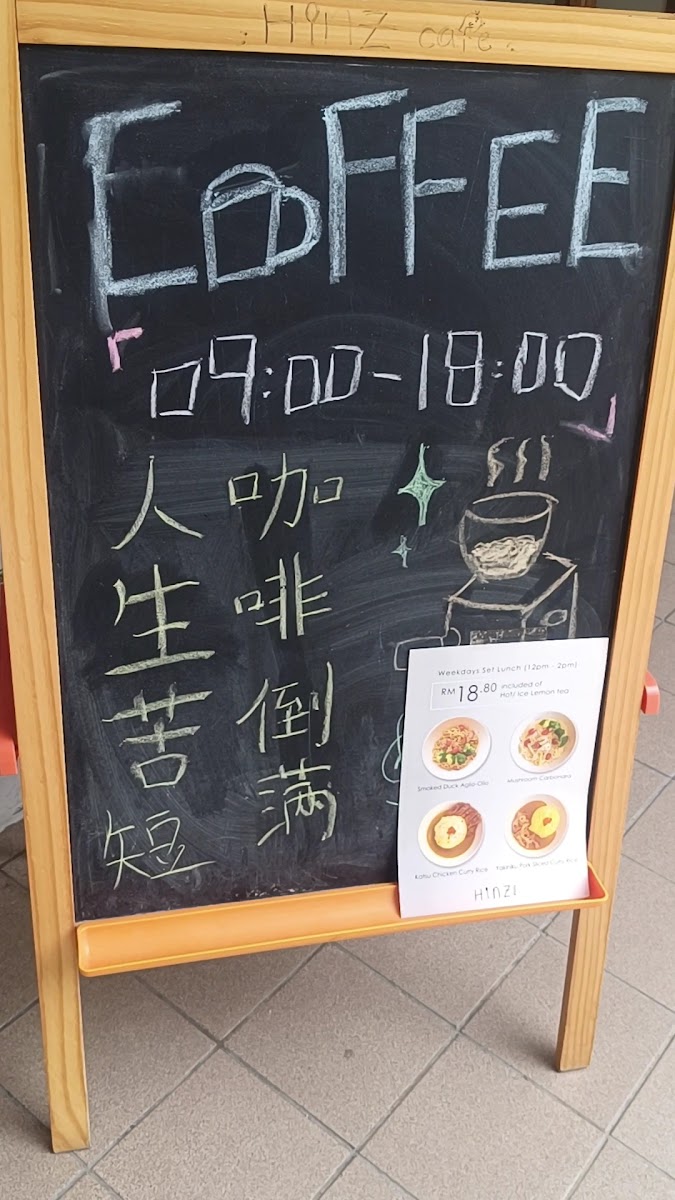 Hinz cafe
COFFEE
「09:00-18:00」
人生苦短
咖啡倒满
Weekdays Set Lunch (12pm - 2pm)
RM 18.80 included of
Hot/ Ice Lemon tea
Smoked Duck Aglio Olio
Mushroom Carbonara
Katsu Chicken Curry Rice
Yakiniku Pork Sliced Curry Rice
HINZ